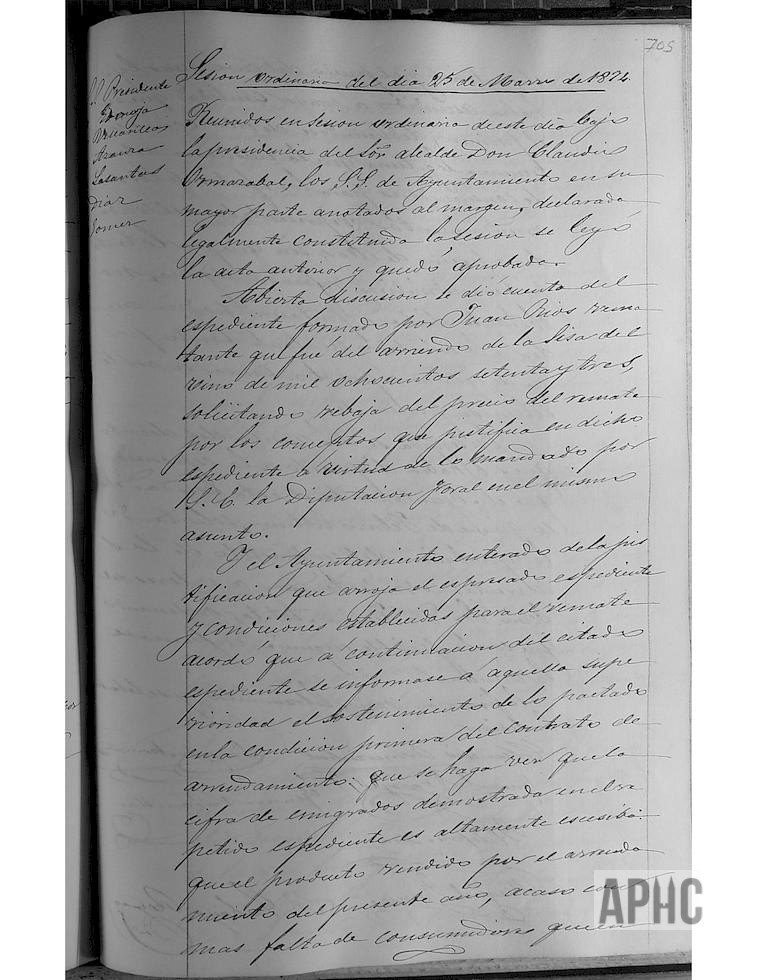 705
Sesion ordinaria del dia 25 de Marzo de 1874.
S.S. Presidente
Araiza
Lasantas
Diaz
Gomez
Reunidos en sesion ordinaria de este dia bajo
la presidencia del Sor. alcalde Don Claudio
Ormazabal, los S.S. de Ayuntamiento en su
mayor parte anotados al margen, declarada
legalmente constituida la sesion se leyó
la acta anterior y quedó aprobada.
Abierta discusion se dió cuenta del
espediente formado por Juan Rios rema
tante que fué del arriendo de la Sisa del
vino de mil ochocientos setenta y tres,
solicitando rebaja del precio del remate
por los conceptos que justifica en dicho
espediente a virtud de lo mandado por
S.E. la Diputacion foral en el mismo
asunto.
Y el Ayuntamiento enterado de la jus
tificacion que arroja el espresado espediente
y condiciones establecidas para el remate
acordó que á continuacion del citado
espediente se informase á aquella supe
rioridad el sostenimiento de lo pactado
en la condicion primera del contrato de
arrendamiento: que se haga ver que la
cifra de emigrados demostrada en el re
petido espediente es altamente escesiba:
que el producto rendido por el arrenda
miento del presente año, acaso con
mas falta de consumidores que en
APHC